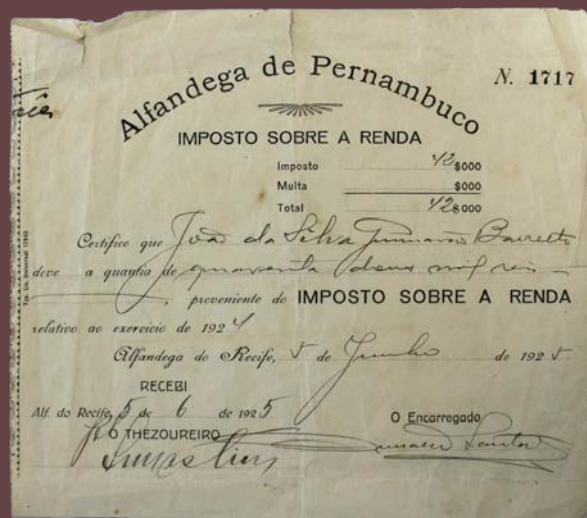 Alfandega de Pernambuco
N. 1717
IMPOSTO SOBRE A RENDA
Imposto 42$000
Multa $000
Total 42$000
Certifico que João da Silva Guimarães Barretto
deve a quantia de quarenta dous mil reis
, proveniente do IMPOSTO SOBRE A RENDA
relativo ao exercicio de 1924
Alfandega do Recife, 5 de Junho de 1925
RECEBI
Alf. do Recife, 5 de 6 de 1925
O Encarregado
O THEZOUREIRO